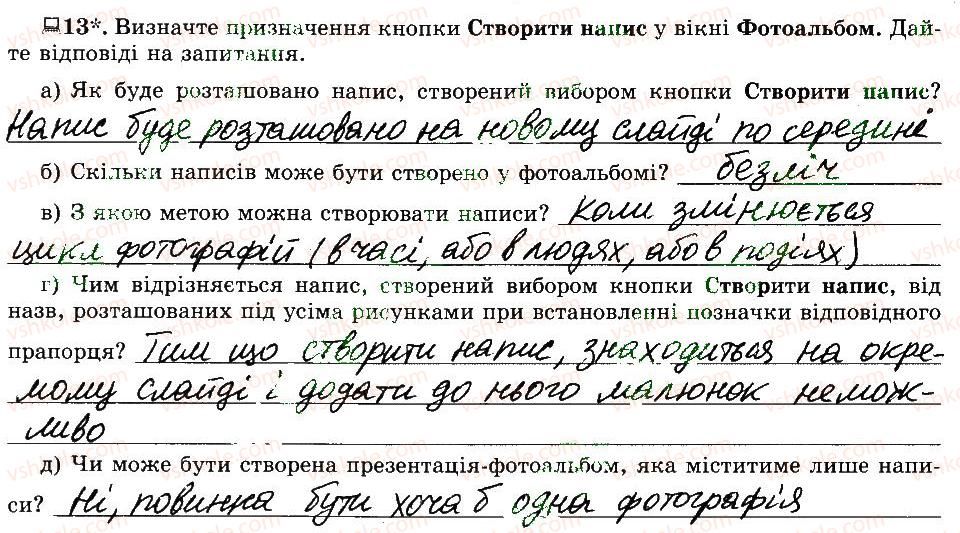 13*. Визначте призначення кнопки Створити напис у вікні Фотоальбом. Дай-
те відповіді на запитання.
а) Як буде розташовано напис, створений вибором кнопки Створити напис?
Напис буде розташовано на новому слайді по середині
б) Скільки написів може бути створено у фотоальбомі? безліч
в) З якою метою можна створювати написи? Коли змінюється
цикл фотографій (в часі, або в людях, або в подіях)
г) Чим відрізняється напис, створений вибором кнопки Створити напис, від
назв, розташованих під усіма рисунками при встановленні позначки відповідного
прапорця? Тим що створити напис, знаходиться на окре-
мому слайді і додати до нього малюнок немож-
ливо
д) Чи може бути створена презентація-фотоальбом, яка міститиме лише напи-
си? Ні, повинна бути хоча б одна фотографія